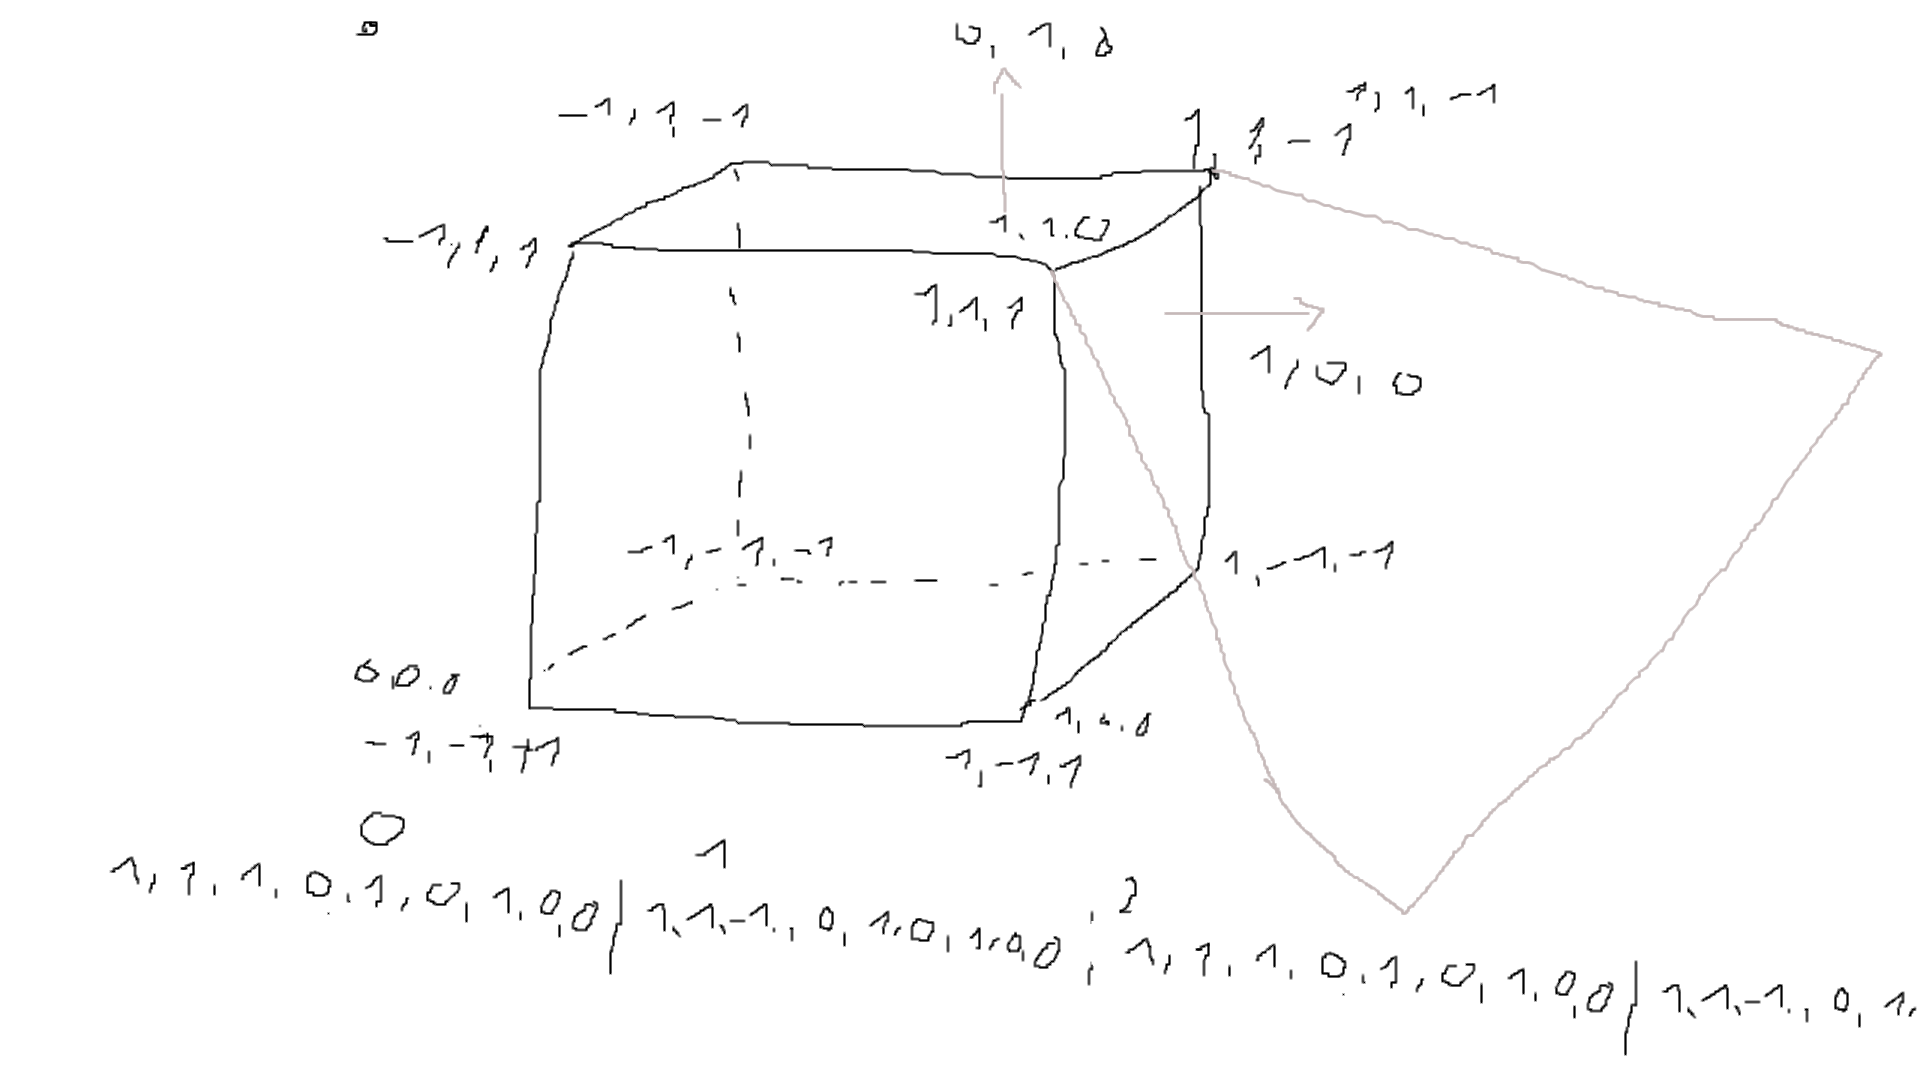 0, 1, 0
-1, 1, -1
1, 1, -1
1, 1, -1
-1, 1, 1
1, 1, 0
1, 1, 1
1, 0, 0
-1, -1, -1
1, -1, -1
0, 0, 0
1, 0, 0
-1, -1, +1
1, -1, 1
0
1
2
1, 1, 1, 0, 1, 0, 1, 0, 0 | 1, 1, -1, 0, 1, 0, 1, 0, 0, 1, 1, 1, 0, 1, 0, 1, 0, 0 | 1, 1, -1, 0, 1,